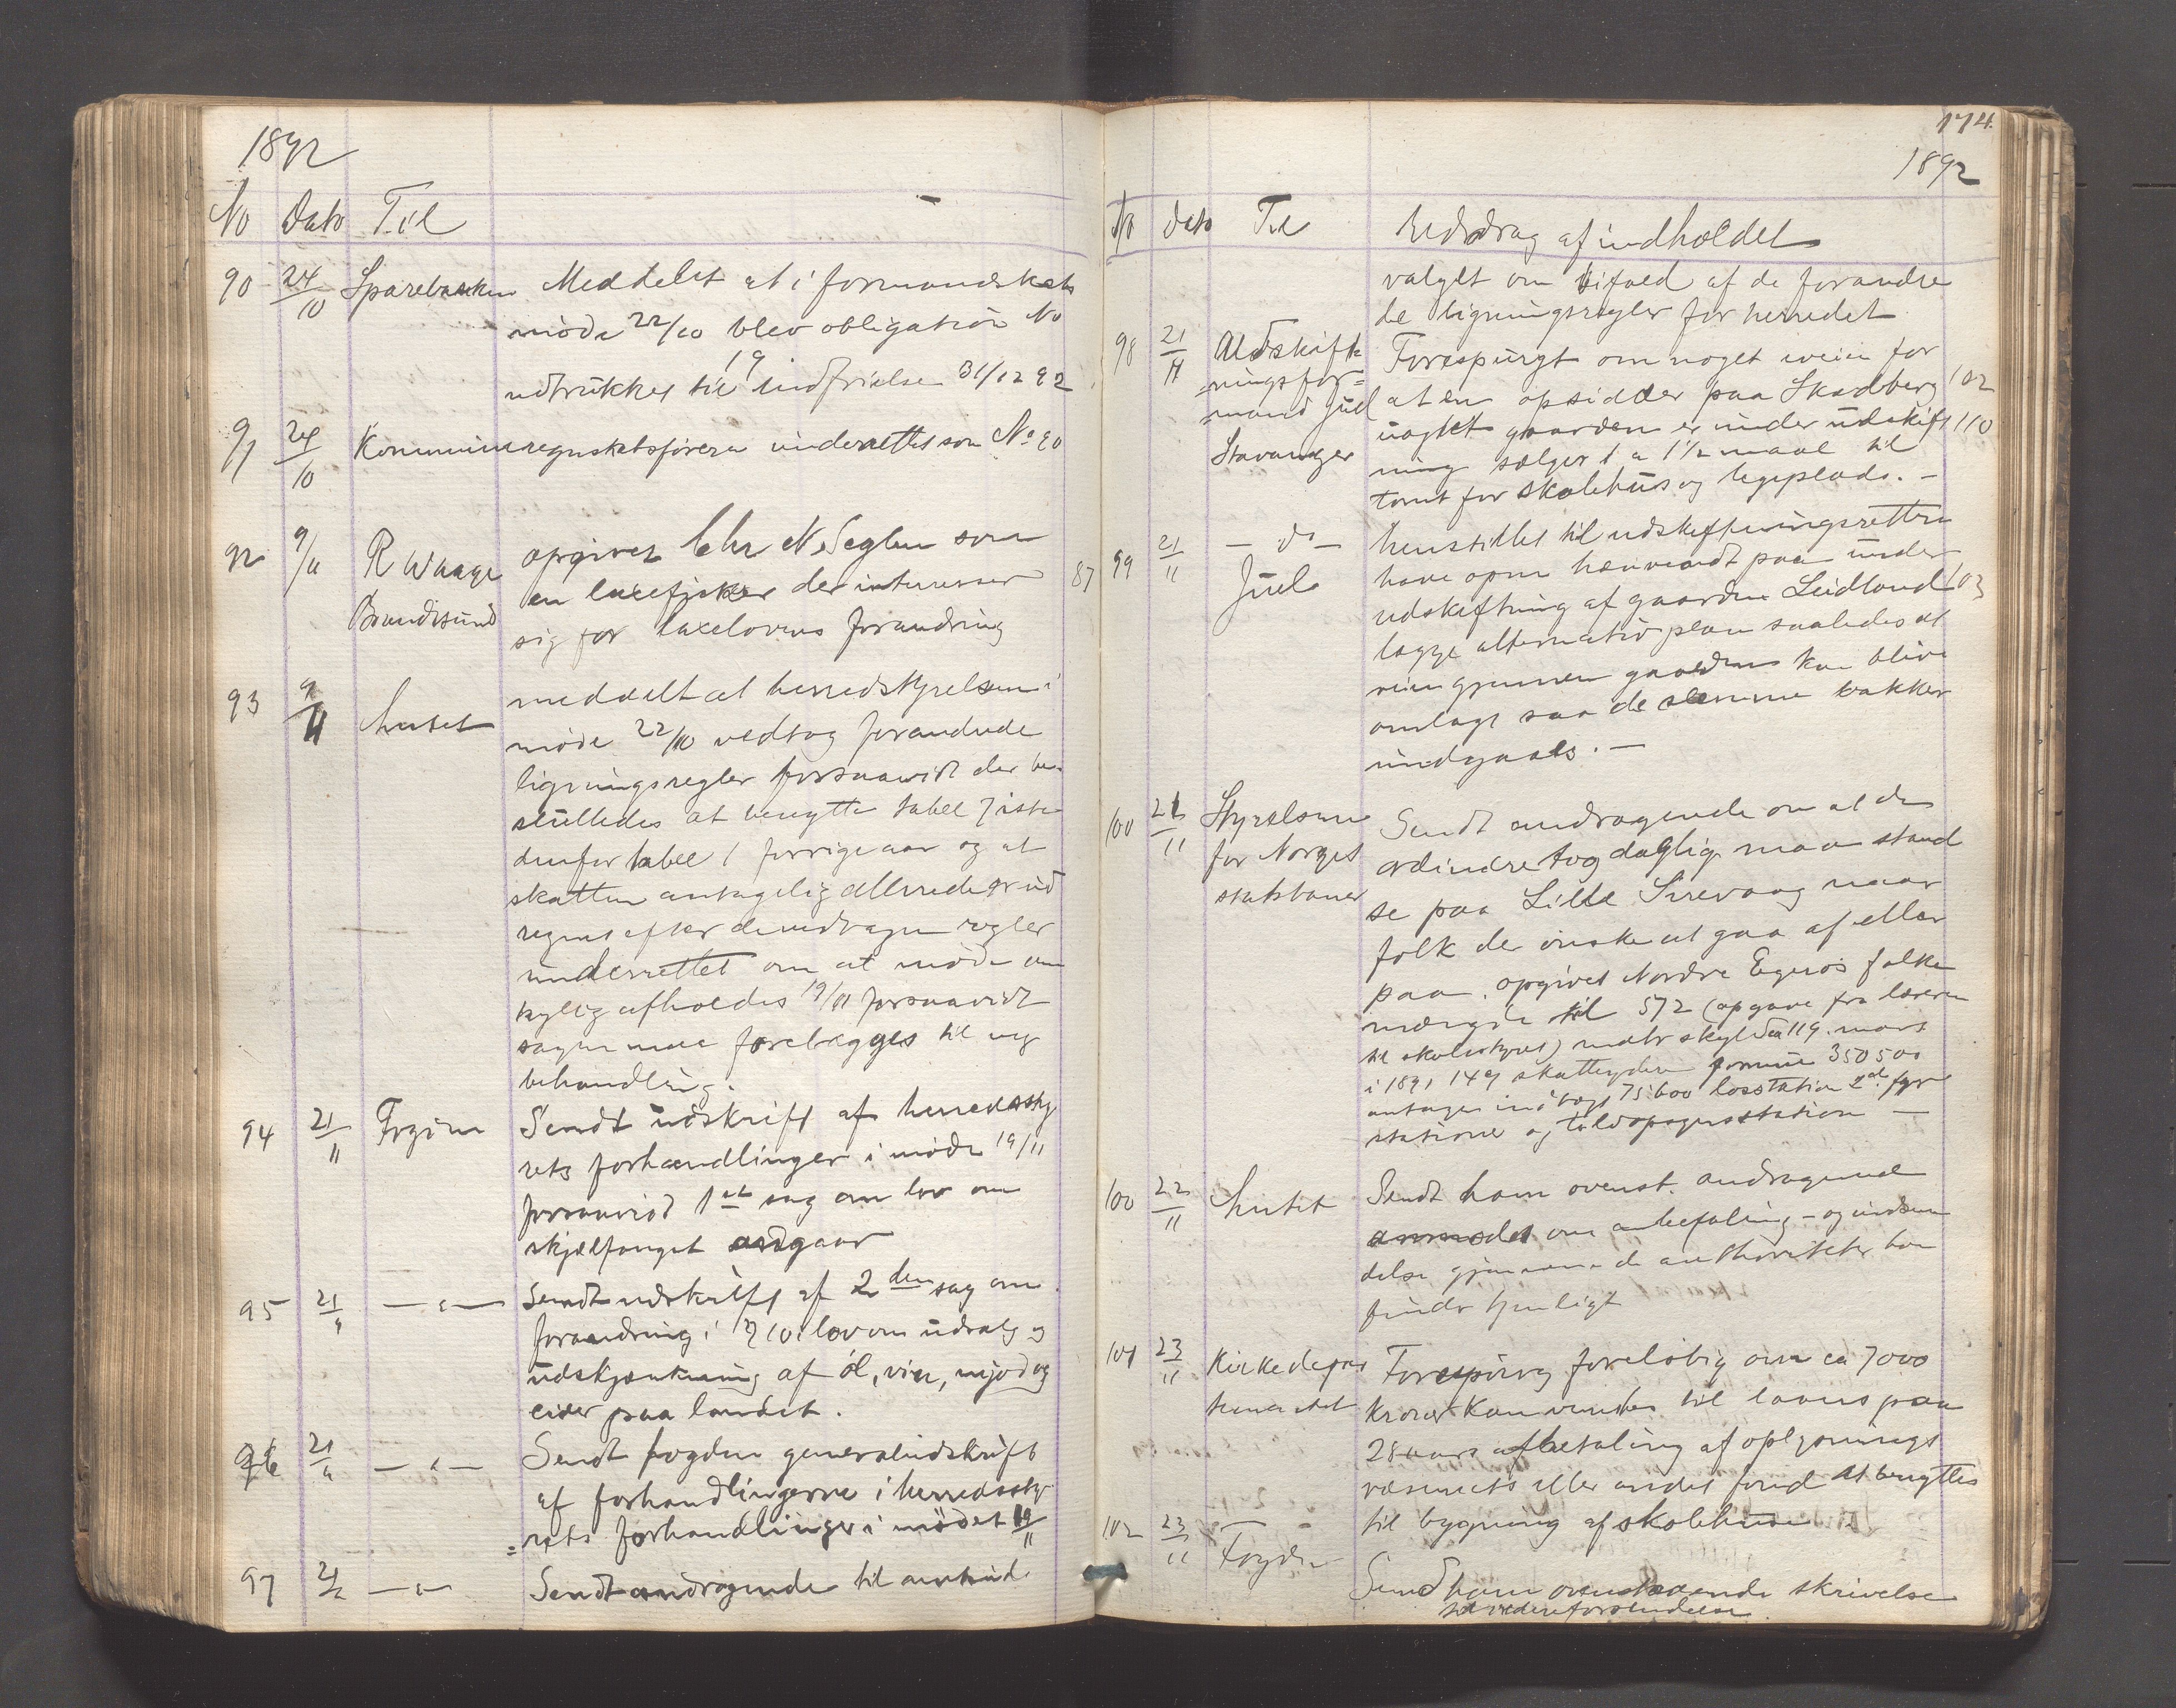 1892
No Dato Til
90 24/10 Sparebanken Meddelt at i formandskabs
møde 22/10 blev obligation No
19
udtrukket til indfrielse 31/12 92
91 24/10 Kommuneregnskabsføreren underrettet som No 90
92 9/11 R Waage opgivet Chr N. Seglem som
Brandsund en laxefisker der interesser 87
sig for laxelovens forandring
93 9/11 Amtet meddelt at herredstyrelsen i
møde 22/10 vedtog forandrede
ligningsregler forsaavidt der be-
sluttedes at benytte tabel 7 iste-
denfor tabel 1 forrige aar og at
skatten antagelig allerede er ud
regnet efter de vedtagne regler
underrettet om at møde
afholdes 19/11 forsaavidt
sagen maa forelægges til ny
behandling.
94 21/11 Fogden Sendt udskrift af herredssty
rets forhandlinger i møde 19/11
forsaavidt 1ste sag om lov om
skjælfanget angaar
95 21/11 — " — Sendt udskrift af 2den sag om
forandring i § 10 i lov om udsalg og
udskjænkning af øl, vin, mjød og
cider paa landet.
96 21/11 — " — Sendt fogden generaludskrift
af forhandlingerne i herredssty-
=rets forhandlinger i mødet 19/11
97 21/11 — " — Sendt andragende til amtmd.
174.
1892
No Dato Til Uddrag af indholdet
valgt om bifald af de forandre
de ligningsregler for herredet
98 21/11 Udskift- Forespurgt om noget iveien for
=ningsfor= at en opsidder paa Skadberg 102
=mand Juel uagtet gaarden er under udskift 110
Stavanger ning sælger 1 a 1½ maal til
tomt for skolehus og legeplads. —
99 21/11 — do — henstillet til udskiftningsretten
Juel have opm henvendt paa under
udskiftning af gaarden Leidland 103
lægge alternativ plan saaledes at
veien gjennem gaarden kan blive
omlagt saa de slemme bakker
undgaaes. —
100 22/11 Styrelsen Sendt andragende om at de
for Norges ordinære tog daglig maa stand
statsbaner se paa Lille Sirevaag naar
folk der ønske at gaa af eller
paa. opgivet Nordre Egerøs folke
mængde til 572 (opgave fra læreren
til skolestyret) matr skyld ca 119 mark
i 1891 149 skatteydere formue 350500
antagen indtægt 75600 losstation 2de fyr
stationer og toldopsynsstation —
100 22/11 Amtet Sendt ham ovenst. andragende
anmodet om anbefaling – og indsen
delse gjennem de authoriteter han
finder tjenligt
101 23/11 Kirkedepar Forespørg foreløbig om ca 7000
tementet kroner kan ventes til laans paa
28 aars afbetaling af oplysnings
væsenets eller andet fond at benyttes
til bygning af skolehuse
102 23/11 Fogden Sendt ham ovenstaaende skrivelse
til videreforsendelse